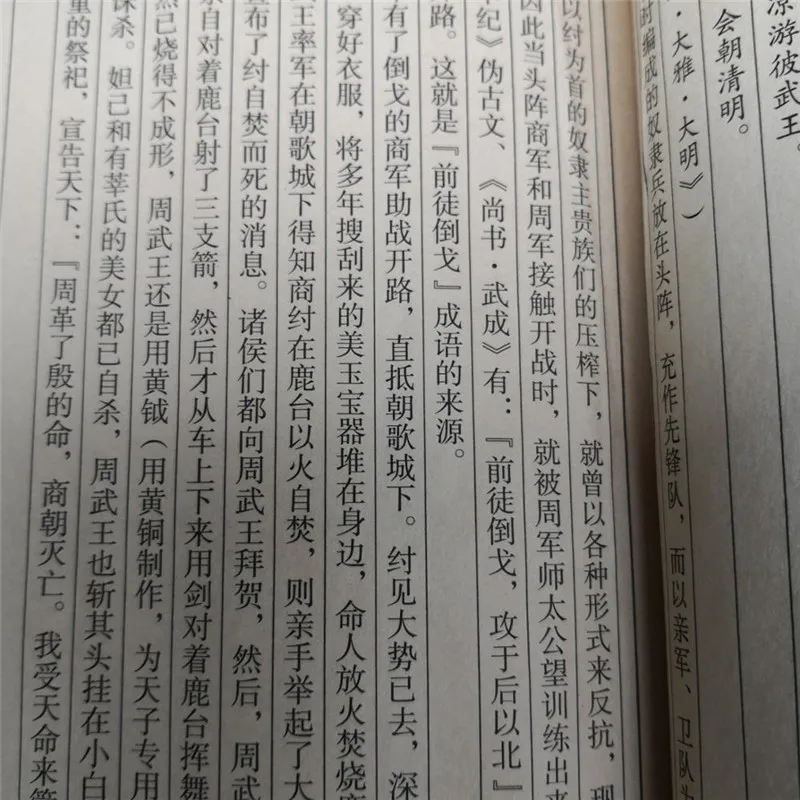 游彼武王。
会朝清明。
·大雅·大明》）
时编成的奴隶兵放在头阵，充作先锋队，而以亲军、卫队为
以纣为首的奴隶主贵族们的压榨下，就曾以各种形式来反抗，现
因此当头阵商军和周军接触开战时，就被周军师太公望训练出来
纪》伪古文、《尚书·武成》有：『前徒倒戈，攻于后以北』
路。这就是『前徒倒戈』成语的来源。
有了倒戈的商军助战开路，直抵朝歌城下。纣见大势已去，深
穿好衣服，将多年搜刮来的美玉宝器堆在身边，命人放火焚烧
王率军在朝歌城下得知商纣在鹿台以火自焚，则亲手举起了大
布了纣自焚而死的消息。诸侯们都向周武王拜贺，然后，周武
亲自对着鹿台射了三支箭，然后才从车上下来用剑对着鹿台挥舞
然已烧得不成形，周武王还是用黄钺（用黄铜制作，为天子专用
诛杀。妲己和有莘氏的美女都已自杀，周武王也斩其头挂在小白
重的祭祀，宣告天下：『周革了殷的命，商朝灭亡。我受天命来